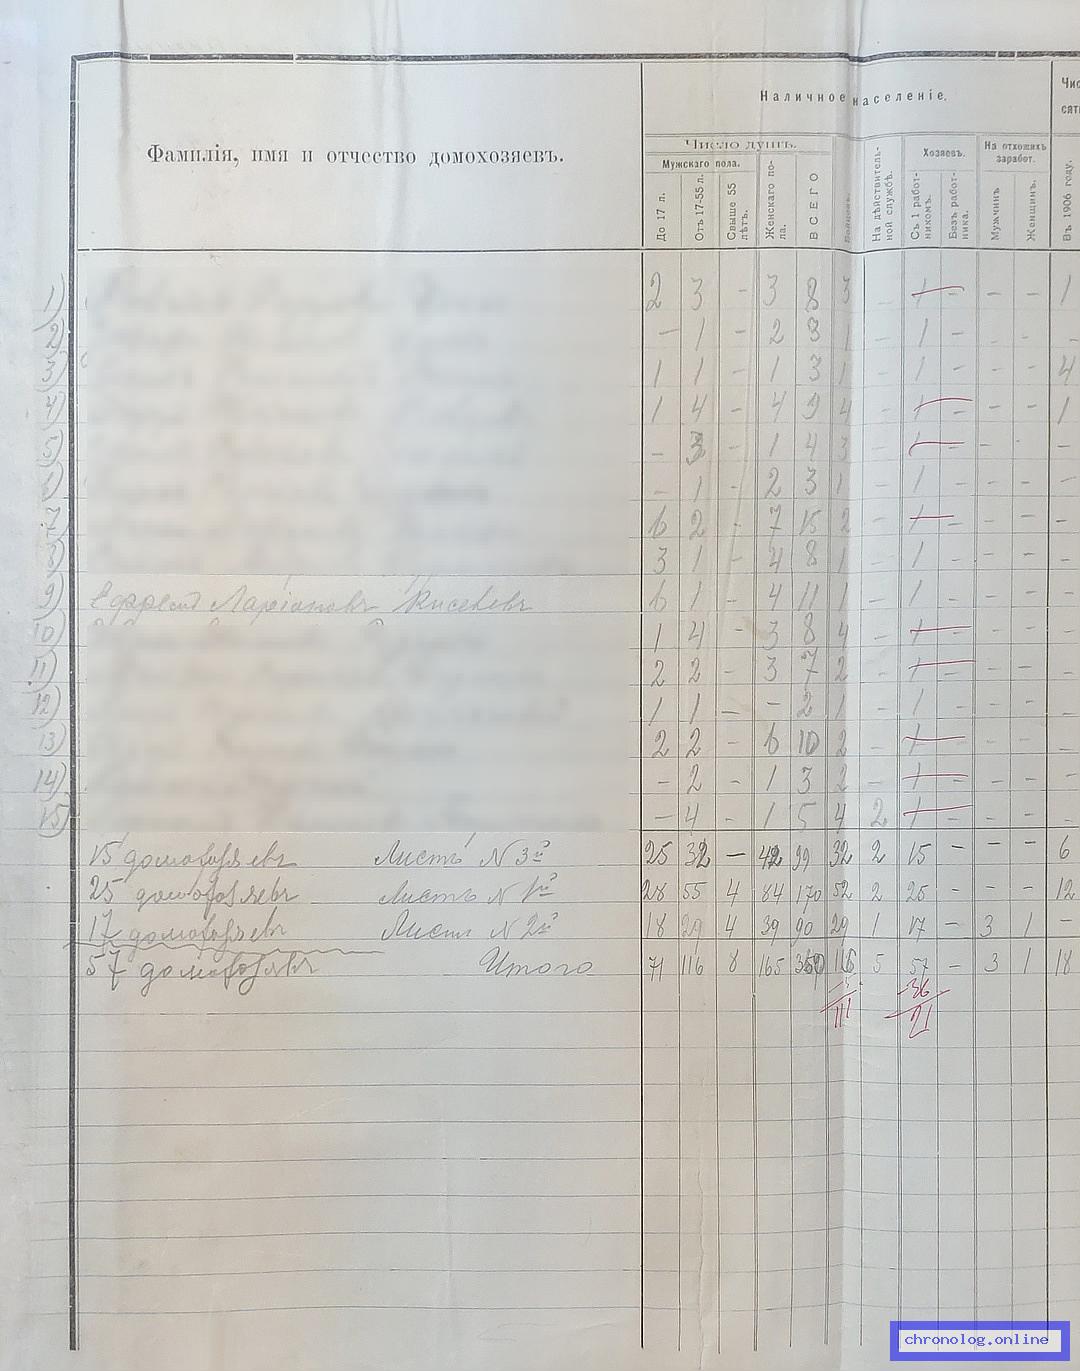 Наличное населеніе.
Фамилія, имя и отчество домохозяевъ.
Число душъ.
Мужскаго пола.
До 17 л.
Отъ 17-55 л.
Свыше 55 лѣтъ.
Женскаго пола.
ВСЕГО
На дѣйствительной службѣ.
Хозяевъ.
Съ 1 работникомъ.
Безъ работника.
На отхожихъ заработ.
Мужчинъ
Женщинъ.
Въ 1906 году.
1) 2 3 - 3 8 3 - 1 - - - 1
2) - 1 - 2 3 1 - 1 - - - -
3) 1 1 - 1 3 1 - 1 - - - 4
4) 1 4 - 4 9 4 - 1 - - - 1
5) - 3 - 1 4 3 - 1 - - - -
6) - 1 - 2 3 1 - 1 - - - -
7) 6 2 - 7 15 2 - 1 - - - -
8) 3 1 - 4 8 1 - 1 - - - -
9) Ларіоновъ Киселевъ 6 1 - 4 11 1 - 1 - - - -
10) 1 4 - 3 8 4 - 1 - - - -
11) 2 2 - 3 7 2 - 1 - - - -
12) 1 1 - - 2 1 - 1 - - - -
13) 2 2 - 6 10 2 - 1 - - - -
14) - 2 - 1 3 2 - 1 - - - -
15) - 4 - 1 5 4 2 1 - - - -
15 домохозяевъ Листъ № 3й 25 32 - 42 99 32 2 15 - - - 6
25 домохозяевъ Листъ № 1й 28 55 4 84 170 52 2 25 - - - 12
17 домохозяевъ Листъ № 2й 18 29 4 39 90 29 1 17 - 3 1 -
57 домохозяевъ Итого 71 116 8 165 116 5 57 - 3 1 18
-5 -36
111 21
chronolog.online